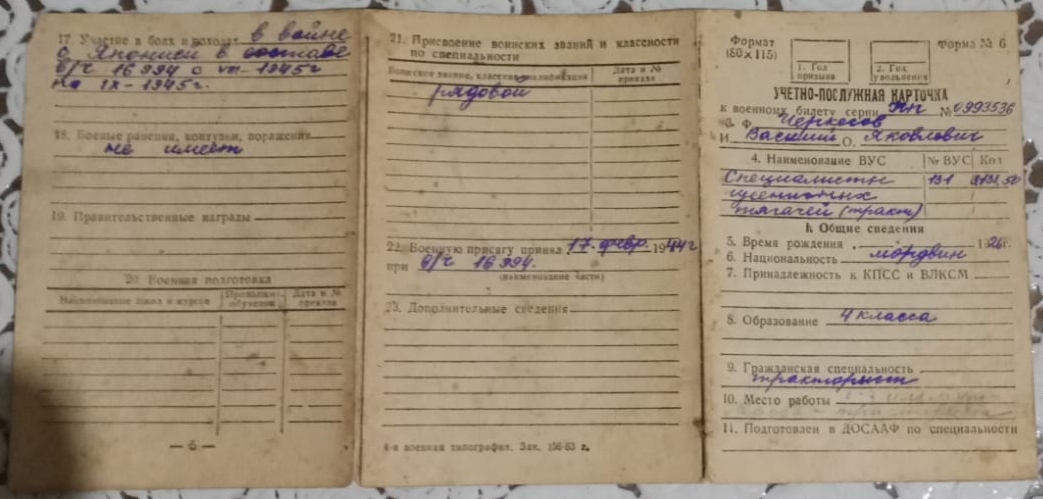 17. Участие в боях и походах в войне
с Японией в составе
в/ч 16994 с VIII-1945г
по IX-1945г.
18. Боевые ранения, контузии, поражения
не имеет
19. Правительственные награды
20. Военная подготовка
Наименование школ и курсов
Продолжит. обучения
Дата и № приказа
— 6 —
21. Присвоение воинских званий и классности
по специальности
Воинское звание, классная квалификация
Дата и №
приказа
рядовой
22. Военную присягу принял 17. февр. 1944г
при в/ч 16994.
(наименование части)
23. Дополнительные сведения
4-я военная типография. Зак. 156-63 г.
Формат
(80×115)
Форма № 6
1. Год
призыва
2. Год
увольнения
УЧЕТНО-ПОСЛУЖНАЯ КАРТОЧКА
к военному билету серии НП № 0993536
3. Ф. Черкесов
И. Василий О. Яковлевич
4. Наименование ВУС № ВУС Код
Специалисты 131
гусеничных
тягачей (тракт)
I. Общие сведения
5. Время рождения 1926г.
6. Национальность мордвин
7. Принадлежность к КПСС и ВЛКСМ
8. Образование 4 класса
9. Гражданская специальность
тракторист
10. Место работы
11. Подготовлен в ДОСААФ по специальности